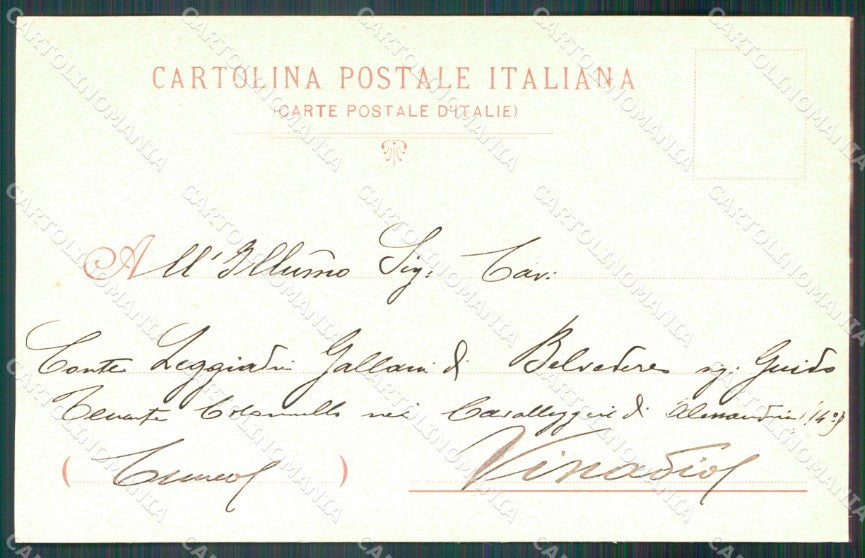 CARTOLINA POSTALE ITALIANA
(CARTE POSTALE D'ITALIE)
All' Illmo Sig. Cav.
Conte Leggiadri Gallani di Belvedere sig. Guido
Tenente Colonnello nei Cavalleggeri di Alessandria (14º)
(Cuneo) Vinadio
CARTOLINOMANIA